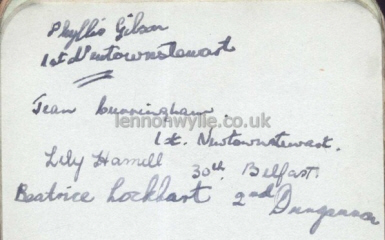 Phyllis Gibson
1st Newtownstewart
Jean Cunningham.
lennonwylie.co.uk
1st. Newtownstewart.
Lily Hamill 30th Belfast.
Beatrice Lockhart 2nd Dungannon